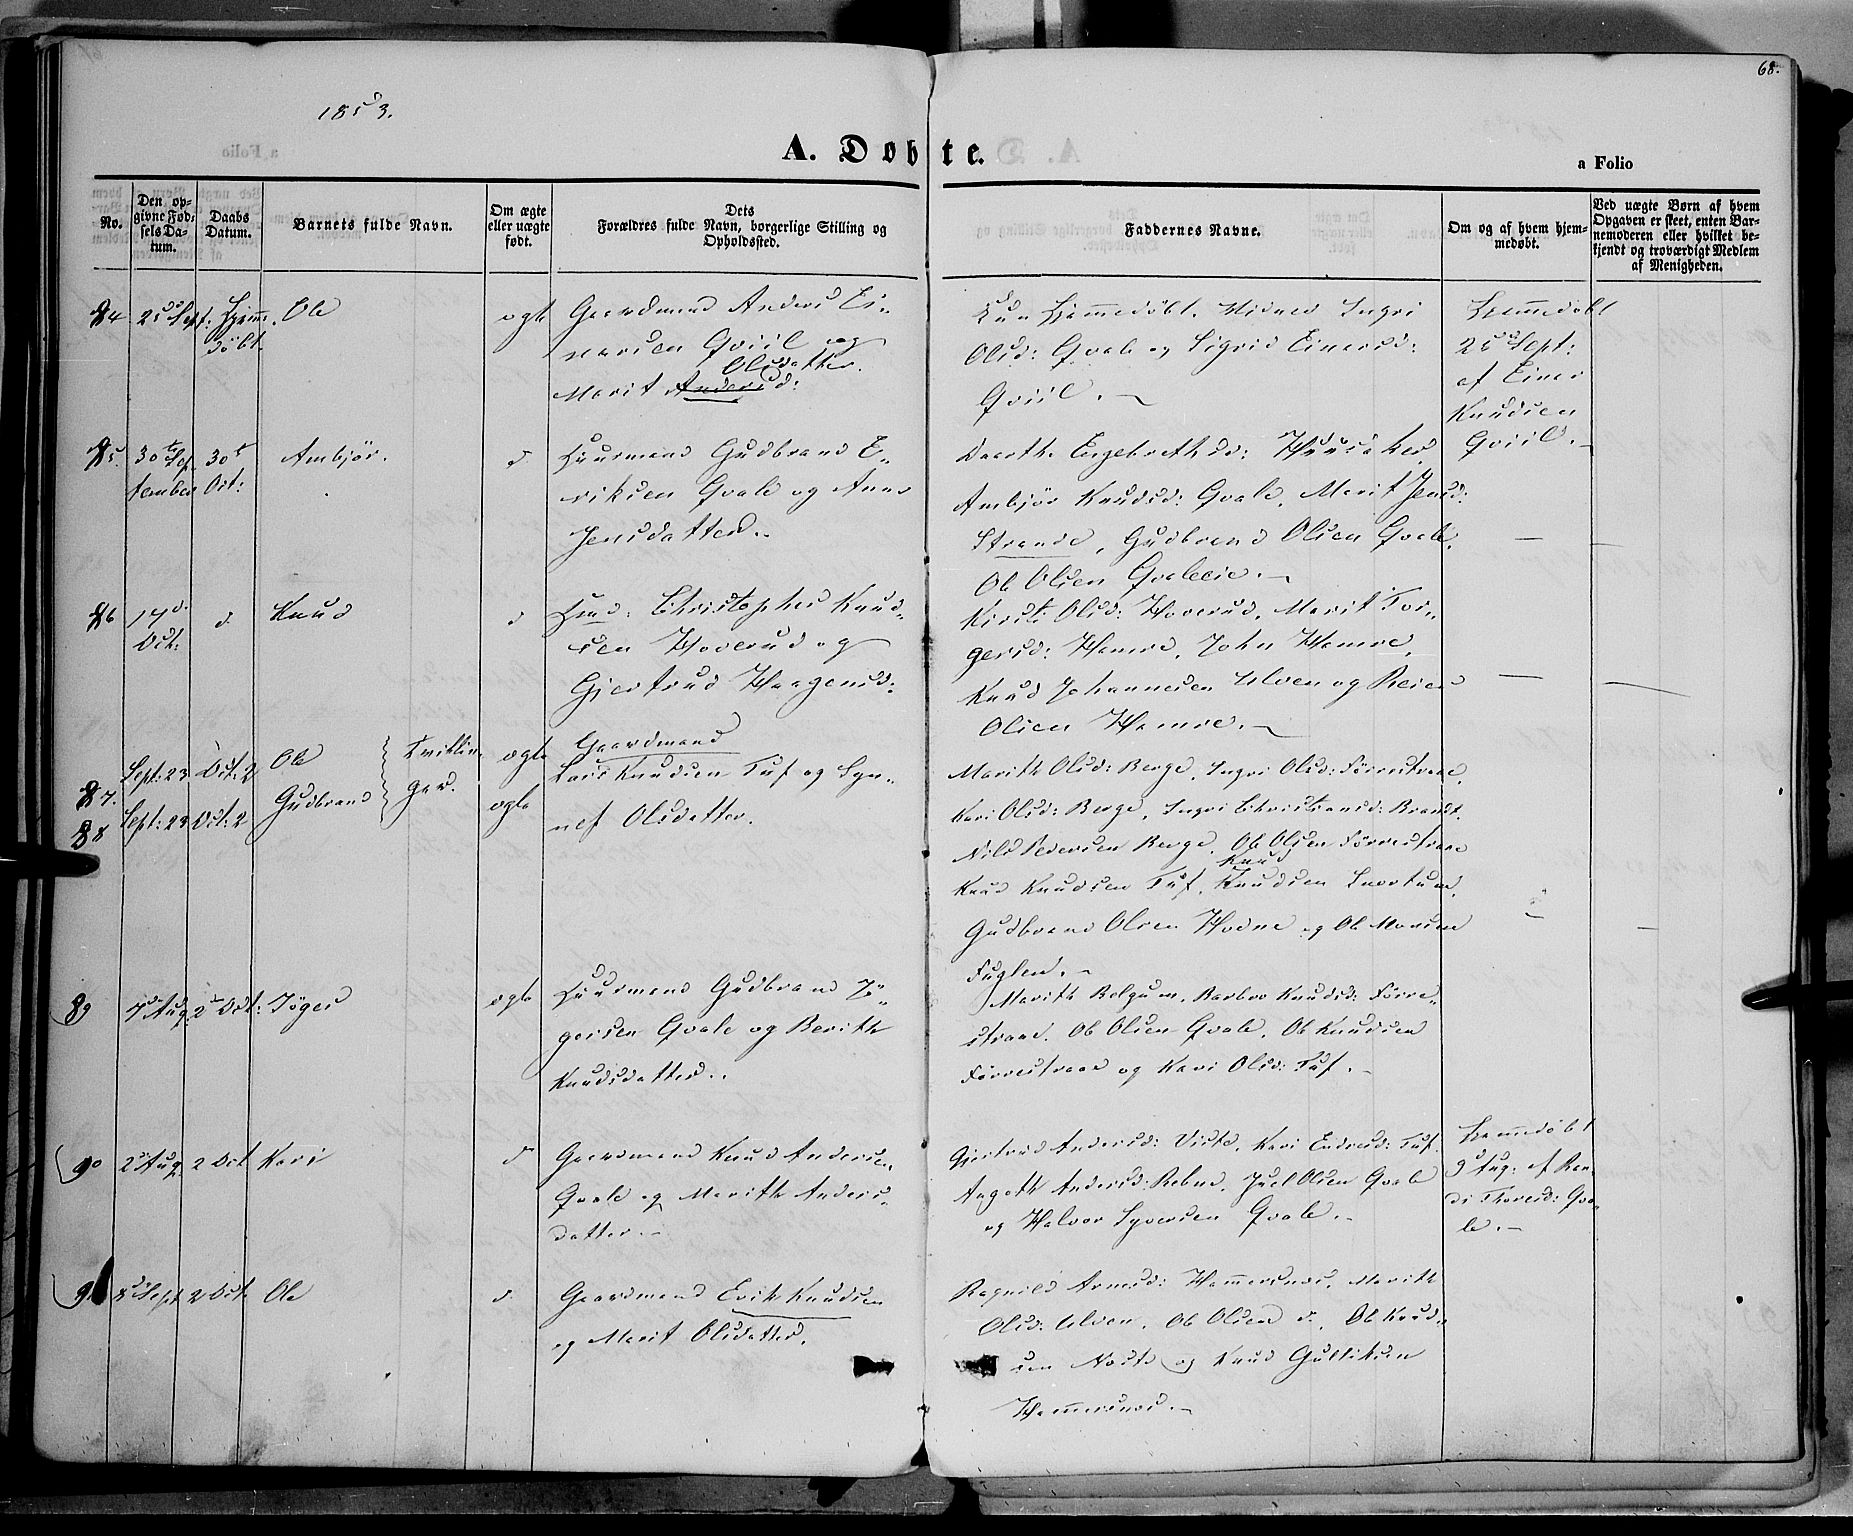 68.
1853.
A. Døbte.
a Folio
No.
Den opgivne Fødselsdatum.
Daabs Datum.
Barnets fulde Navn.
Om ægte eller uægte født.
Dets Forældres fulde Navn, borgerlige Stilling og Opholdssted.
Faddernes Navne.
Om og af hvem hjemmedøbt.
Ved uægte Børn af hvem Opgaven er skeet, enten Barnemoderen eller hvilket bekjendt og troværdigt Medlem af Menigheden.
84 25 Sept: Hjemmedøbt. Ole ægte
Gaardmand Anders Ei-
narsen Qviil og
Olsdatter.
Marit Andersd:
Kun Hjemmedøbt. Vidner Ingri
Olsd: Qvale og Sigrid Einersd:
Qviil. —
Hjemmedøbt
25 Sept:
af Einer
Knudsen
Qviil. —
85. 30te September 30t Oct: Ambjør. d.
Huusmand Gudbrand E-
riksen Qvale og Anne
Jensdatter..
Dorthe Engebrethsd:
Ambjør Knudsd: Qvale, Marit Jensd:
Strande, Gudbrand Olsen Qvale,
Ole Olsen Qvaleeie. —
86 17d. Oct: d. Knud d
Hmd: Christopher Knud-
sen Hoverud og
Gjertrud Haagensd:
Kirsti Olsd: Hoverud, Marit Tor-
gersd: Hamre, John Hamre,
Knud Johannesen Ulven og Reier
Olsen Hamre. —
87. Sept: 23 Oct: 2 Ole Tvillin- ægte
88 Sept: 23 Oct: 2 Gudbrand ger. ægte
Gaardmand
Lars Knudsen Tuf og Syn-
nef Olsdatter.
Marith Olsd: Berge, Ingri Olsd: Førrestrand,
Kari Olsd: Berge, Ingri Christiansd: Brandt.
Nils Pedersen Berge, Ole Olsen Førrestrand
Knud
Knud Knudsen Tuf, Knudsen Snortum,
Gudbrand Olsen Hodne og Ole
Fuglen. —
89 7d Aug: 2d Oct: Jøger ægte
Huusmand Gudbrand Jø-
gersen Qvale og Berith
Knudsdatter..
Marith Belgum, Barbro Knudsd: Førre-
strand. Ole Olsen Qvale, Ole Knudsen
Førrestrand og Kari Olsd: Tuf. —
90 2 Aug 2 Oct Kari d
Gaardmand Knud Andersen
Qvale og Marith Anders-
datter. —
Gjertrud Andersd: Viste, Kari Endresd: Tuf.
Angeth Andersd: Rebne, Juel Olsen Qvale
og Halvor Syversen Qvale. —
Hjemmedøbt
9 Aug: af Ran-
di Thoresd: Qva-
le. —
91 8d Sept 2 Oct: Ole d.
Gaardmand Erik Knudsen
og Marit Olsdatter.
Ragnild Arnesd: Hammersnes, Marith
Olsd: Ulven, Ole Olsen d., Ole Knud-
sen Noste og Knud Gulliksen
Hammersnes. —